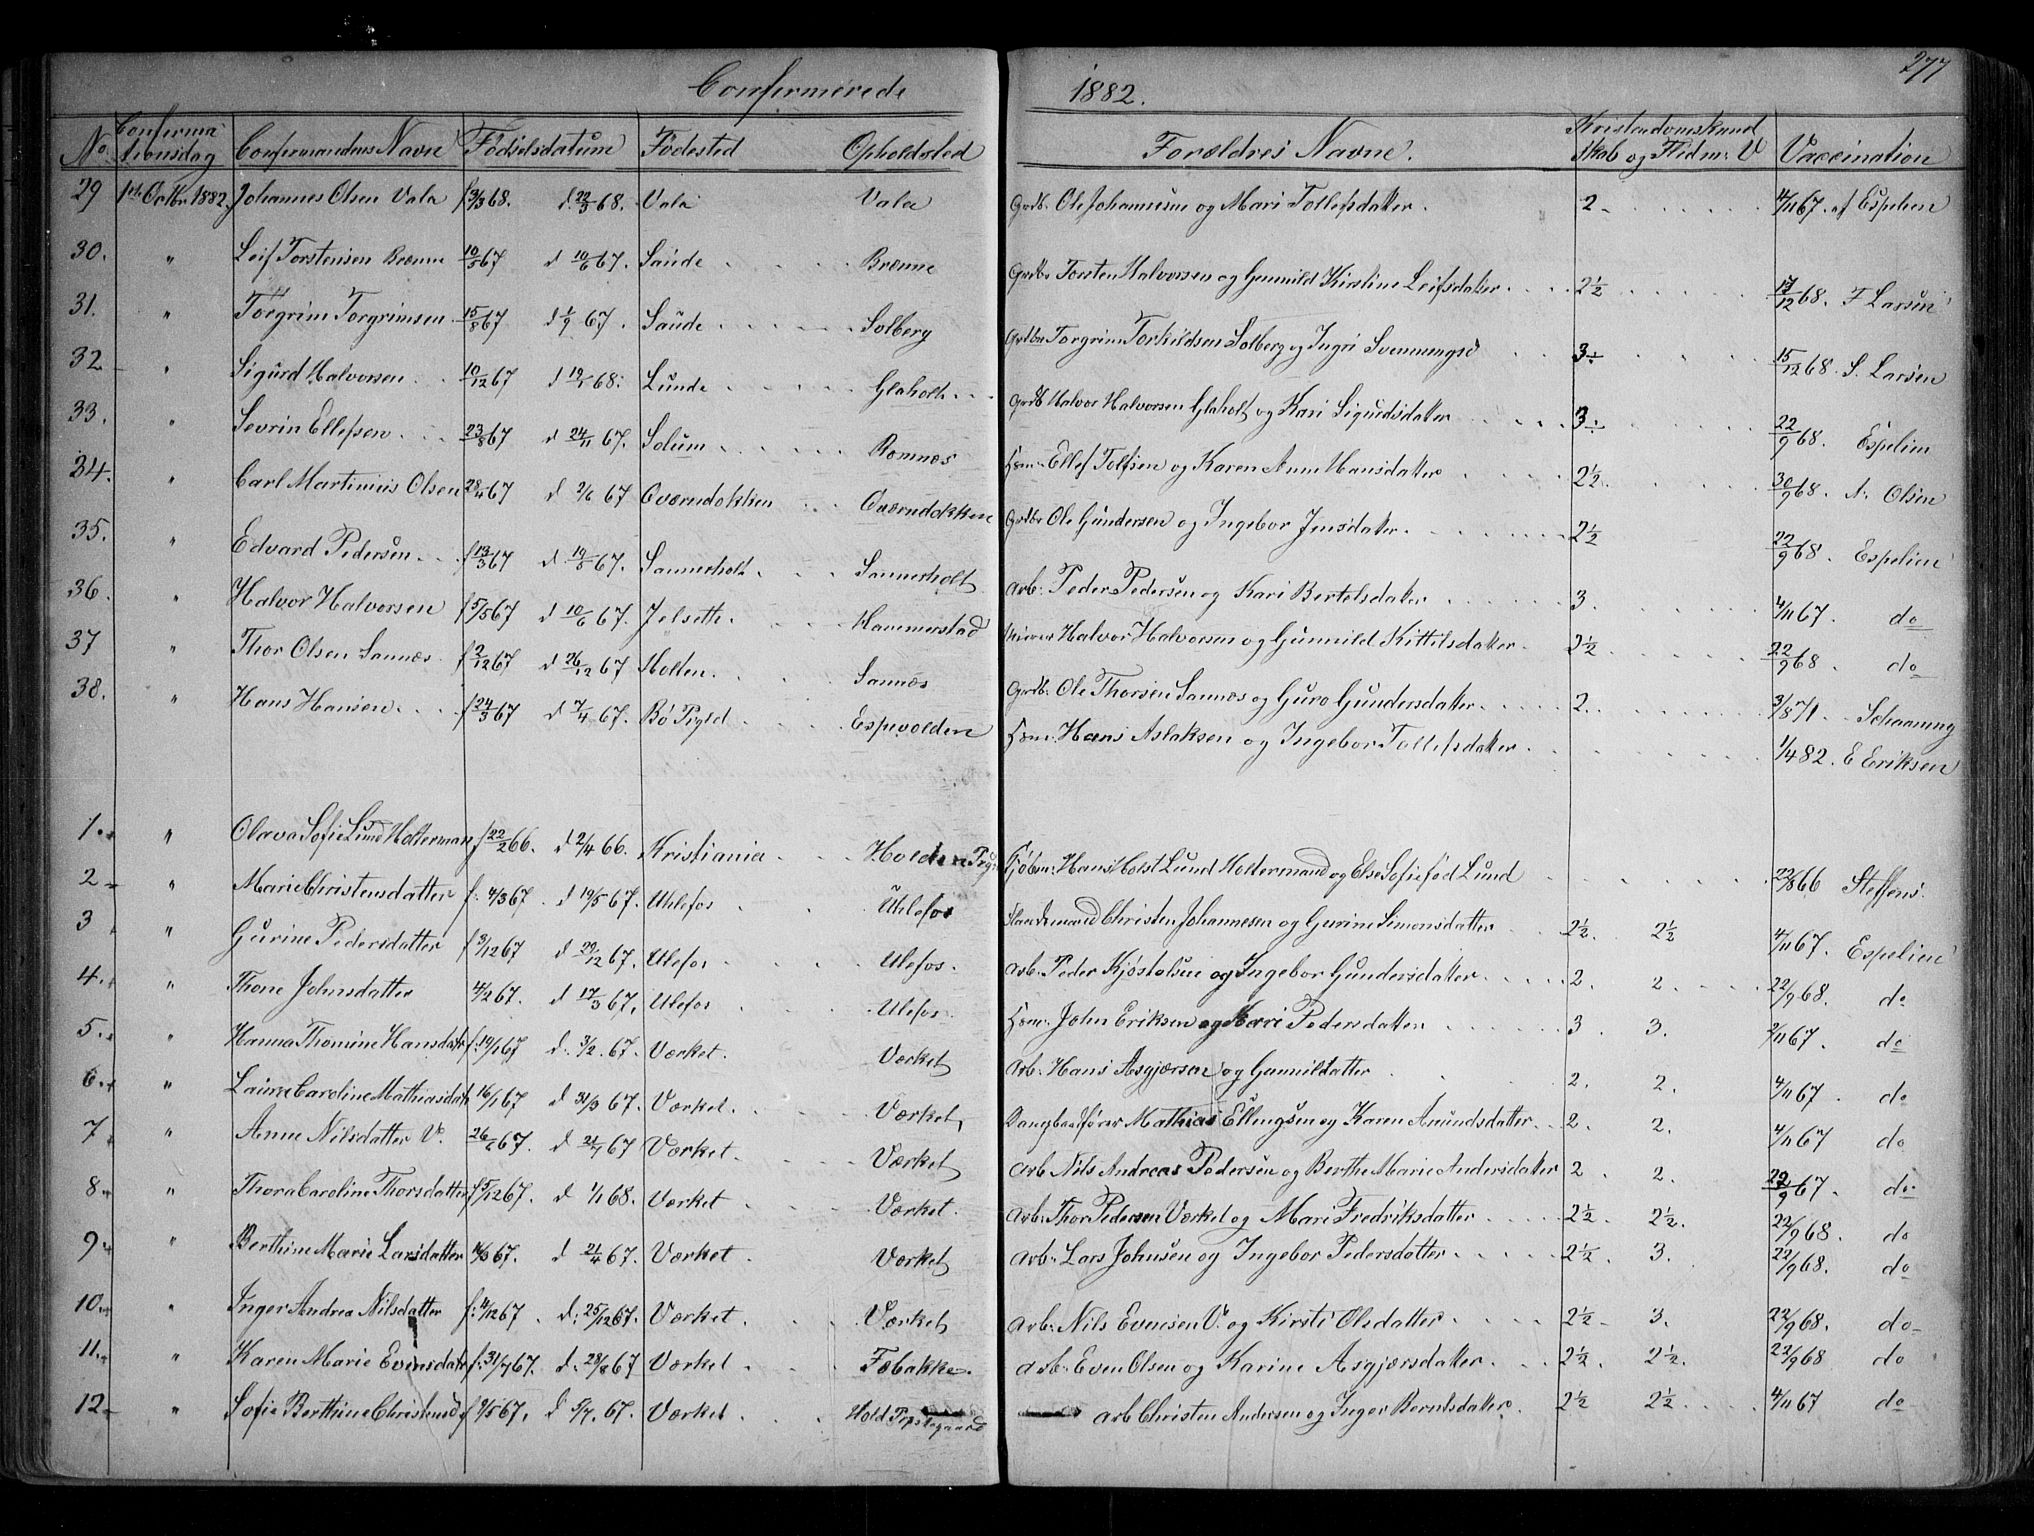 Confirmerede 1882. 277
No. Confirmationsdag Confirmandens Navn Födselsdatum Födested Opholdsted Forældres Navne. Kristendomskundskab og Flidm: V Vaccination
29 1ste Octbr. 1882. Johannes Olsen Vala f 3/3 68. d. 22/3 68. Vala Vala Grdb. Ole Johannesen og Mari Tollefsdatter. 2 4/11 67. af Espelien
30. " Leif Torstensen Brænne 10/5 67 d 10/6 67. Saude Brænne Grdbr Torsten Halvorsen og Gunnild Kirstine Leifsdatter 2½ 17/12 68. F Larsen
31. " Torgrim Torgrimsen 15/8 67 d 1/9 67. Saude Solberg Grdbr Torgrim Torkildsen Solberg og Ingri Svenningsd 3÷ 15/12 68. S. Larsen
32 " Sigurd Halvorsen 10/12 67 d 19/1 68. Lunde Glaholt Grdb Halvor Halvorsen Glaholt og Kari Sigurdsdatter 3÷ 22/9 68. Espelien
33. " Sevrin Ellefsen 23/8 67 d 24/11 67. Solum Romnæs Hsm: Ellef Tolfsen og Karen Anne Hansdatter 2½ 30/9 68. N. Olsen
34. " Carl Martinius Olsen 28/4 67 d 2/6 67 Qværndokken Qværndokken Grdbr Ole Gundersen og Ingebor Jensdatter 2½ 22/9 68. Espelien
35. " Edvard Pedersen f 13/3 67 d 19/5 67. Sannerholt Sannerholt Arb: Peder Pedersen og Kari Bertelsdatter 3. 4/11 67. do
36. " Halvor Halvorsen f 5/5 67 d 10/6 67. Jelseth Hammerstad Halvor Halvorsen og Gunnild Kittilsdatter 2½ 22/9 68. do
37 " Thor Olsen Sannæs f 2/12 67 d 26/12 67 Holten Sannæs Grdb: Ole Thorsen Sannæs og Guro Gundersdatter 2. 3/8 71. Schaaning
38. " Hans Hansen f 24/3 67 d 7/4 67. Bö Pgld Espevolden Hsm: Hans Aslaksen og Ingebor Tollefsdatter 1/4 82. E Eriksen
1. " Olava Sofie Lund Holterman f 22/2 66. d 2/4 66. Kristiania Holden Kjöbm: Hans Holst Lund Holtermand og Else Sofie föd Lund 22/8 66 Steffens.
2 " Marie Christensdatter f: 4/3 67. d 19/5 67. Uhlefos Uhlefos Christen Johannesen og Gurine Simonsdatter 2½. 2½ 4/11 67. Espelien
3 " Gurine Pedersdatter f 3/12 67 d 29/12 67. Ulefos Ulefos. Arb. Peder Kjöstolsen og Ingebor Gundersdatter 2. 2. 22/9 68. do
4. " Thone Johnsdatter 4/2 67. d 17/3 67. Ulefos Ulefos. Hsm: John Eriksen og Kari Pedersdatter 3. 3. 2/11 67. do
5. " Hanna Thomine Hansdatr f: 19/1 67 d: 3/2. 67. Værket. Værket Arb: Hans Asgjærsen og Gunnildatter 2. 2. 4/11 67. do
6. " Laura Caroline Mathiasdatr 16/1 67 d 31/3 67. Værket. Værket Mathias Ellengsen og Karen Amundsdatter 2. 2. 4/11 67 do
7 " Anne Nilsdatter V. 26/6 67. d 21/7 67 Værket Værket Arb. Nils Andreas Pedersen og Berthe Marie Andersdatter 2. 2. 22/9 67. do
8. " Thora Caroline Thorsdatter f 5/12 67. d 1/1 68. Værket Værket. Arb: Thor Pedersen Værket og Mari Fredriksdatter 2½. 2½. 22/9 68. do
9. " Berthine Marie Larsdatter 4/3 67. d 21/4 67. Værket Værket Arb: Lars Johnsen og Ingebor Pedersdatter 2½. 3. 22/9 68. do
10. " Inger Andrea Nilsdatter f: 4/12 67. d: 25/12 67. Værket. Værket Arb: Nils Evensen V. og Kirsti Olsdatter 2½ 3. 22/9 68. do
11. " Karen Marie Evensdatr f: 31/7 67. d. 28/8 67 Værket Fæbakke. Arb: Even Olsen og Karine Asgjærsdatter 2½. 2½. 22/9 68 do
12 " Sofie Berthine Christensd f 9/5 67. d 5/7. 67. Værket Hold Prestegaard Arb Christen Andersen og Inger Berntsdatter. 2½ 2½ 4/11 67 do